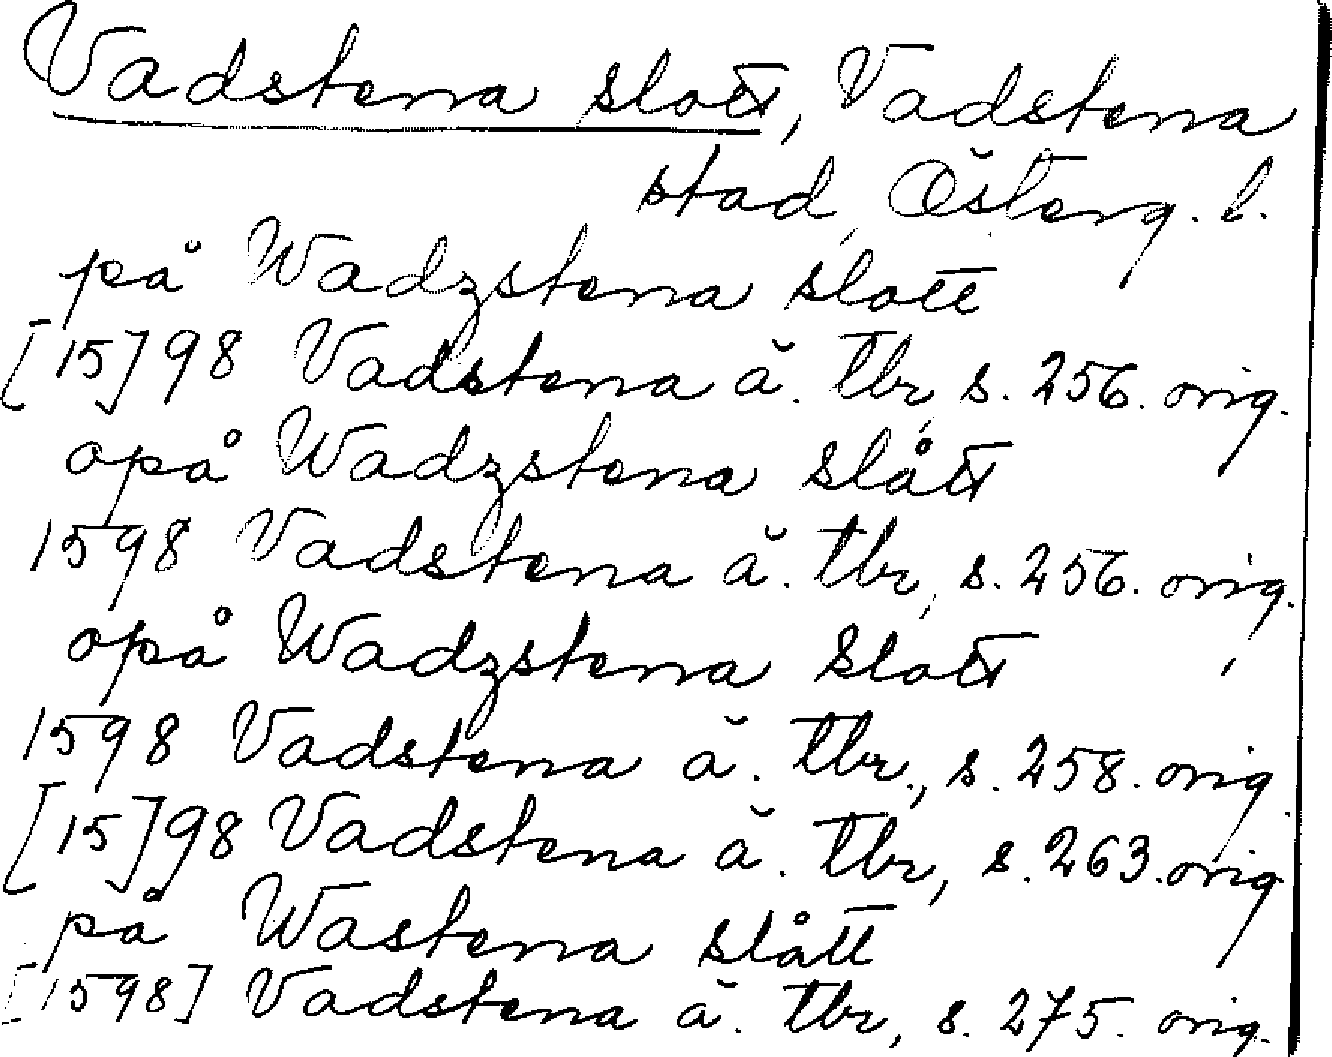 Vadstena slott, Vadstena
stad, Österg. l.
på Wadzstena slott
[15]98 Vadstena ä. tbr, s. 256. orig.
opå Wadzstena slått
1598 Vadstena ä. tbr, s. 256. orig.
opå Wadzstena Slott
1598 Vadstena ä. tbr., s. 258. orig.
[15]98 Vadstena ä. tbr, s. 263. orig.
på Wastena slått
[1598] Vadstena ä. tbr, s. 275. orig.